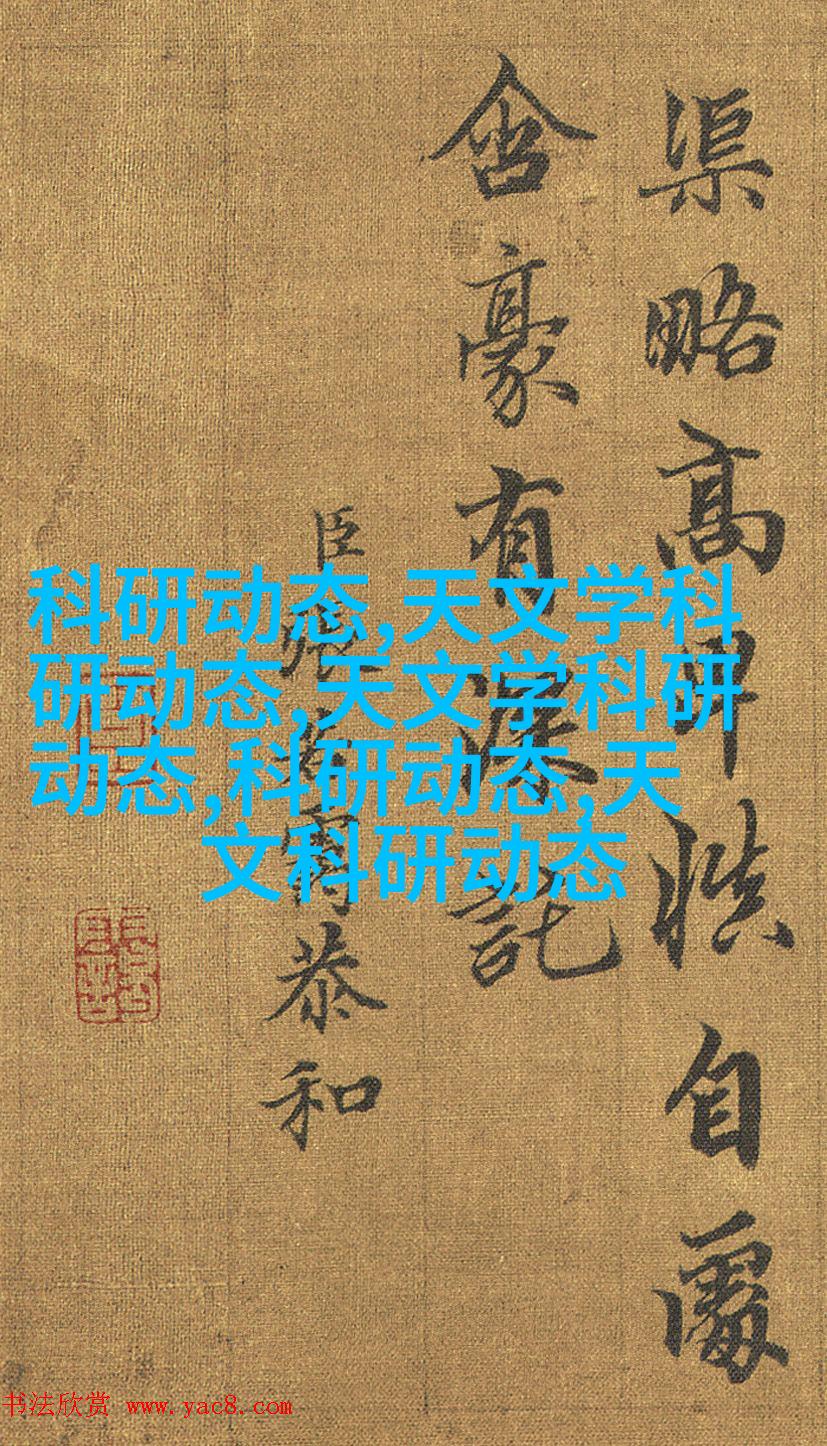 渠略高卑慎自處
含豪有深託
臣張若靄恭和
科研动态,天文学科
研动态,天文学科研
动态,科研动态,天
文科研动态
书法欣赏 www.yac8.com